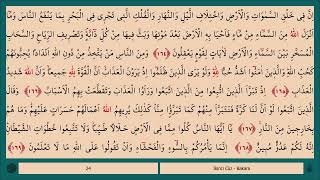 اِنَّ فِى خَلْقِ السَّمٰوَاتِ وَالْاَرْضِ وَاخْتِلَافِ الَّيْلِ وَالنَّهَارِ وَالْفُلْكِ الَّتِى تَجْرِى فِى الْبَحْرِ بِمَا يَنْفَعُ النَّاسَ وَمَٓا
اَنْزَلَ اللّٰهُ مِنَ السَّمَٓاءِ مِنْ مَٓاءٍ فَاَحْيَا بِهِ الْاَرْضَ بَعْدَ مَوْتِهَا وَبَثَّ فِيهَا مِنْ كُلِّ دَٓابَّةٍ وَتَصْرِيفِ الرِّيَاحِ وَالسَّحَابِ
الْمُسَخَّرِ بَيْنَ السَّمَٓاءِ وَالْاَرْضِ لَاٰيَاتٍ لِقَوْمٍ يَعْقِلُونَ ﴿١٦٤﴾ وَمِنَ النَّاسِ مَنْ يَتَّخِذُ مِنْ دُونِ اللّٰهِ اَنْدَادًا يُحِبُّونَهُمْ
كَحُبِّ اللّٰهِ وَالَّذِينَ اٰمَنُٓوا اَشَدُّ حُبًّا لِلّٰهِ وَلَوْ يَرَى الَّذِينَ ظَلَمُٓوا اِذْ يَرَوْنَ الْعَذَابَ اَنَّ الْقُوَّةَ لِلّٰهِ جَمِيعًا وَاَنَّ اللّٰهَ شَدِيدُ
الْعَذَابِ ﴿١٦٥﴾ اِذْ تَبَرَّاَ الَّذِينَ اتُّبِعُوا مِنَ الَّذِينَ اتَّبَعُوا وَرَاَوُا الْعَذَابَ وَتَقَطَّعَتْ بِهِمُ الْاَسْبَابُ ﴿١٦٦﴾ وَقَالَ
الَّذِينَ اتَّبَعُوا لَوْ اَنَّ لَنَا كَرَّةً فَنَتَبَرَّاَ مِنْهُمْ كَمَا تَبَرَّؤُا مِنَّا كَذٰلِكَ يُرِيهِمُ اللّٰهُ اَعْمَالَهُمْ حَسَرَاتٍ عَلَيْهِمْ وَمَا هُمْ
بِخَارِجِينَ مِنَ النَّارِ ﴿١٦٧﴾ يَٓا اَيُّهَا النَّاسُ كُلُوا مِمَّا فِى الْاَرْضِ حَلَالًا طَيِّبًا وَلَا تَتَّبِعُوا خُطُوَاتِ الشَّيْطَانِ
اِنَّهُ لَكُمْ عَدُوٌّ مُبِينٌ ﴿١٦٨﴾ اِنَّمَا يَاْمُرُكُمْ بِالسُّٓوءِ وَالْفَحْشَٓاءِ وَاَنْ تَقُولُوا عَلَى اللّٰهِ مَا لَا تَعْلَمُونَ ﴿١٦٩﴾
24
İkinci Cüz - Bakara